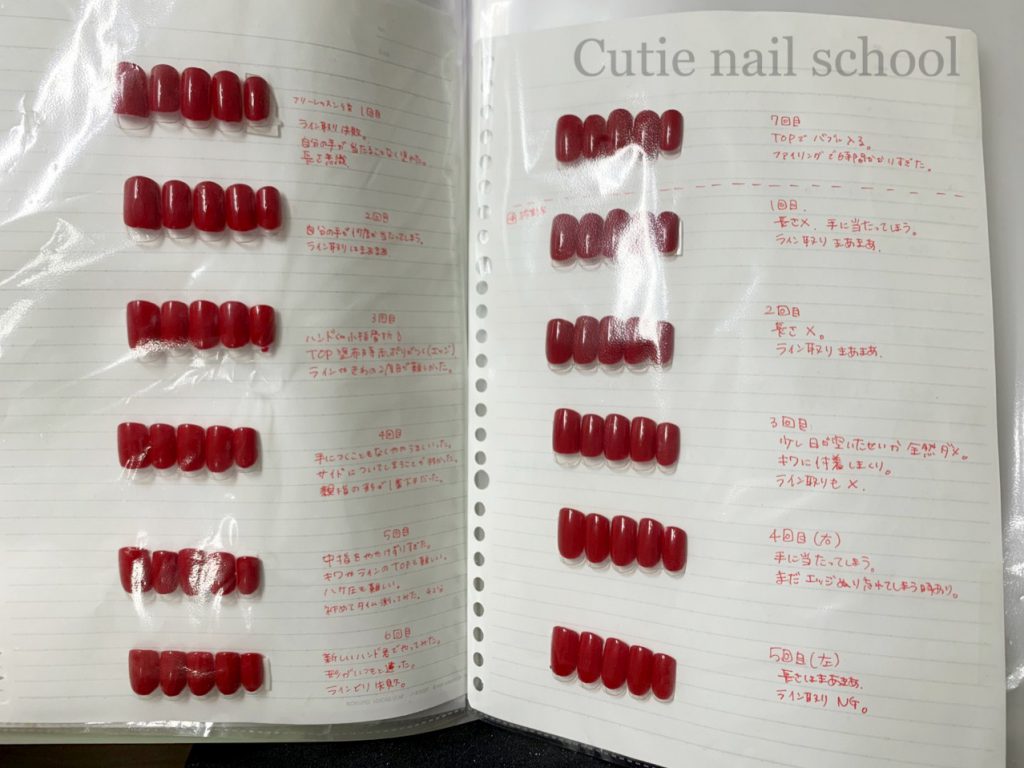 Cutie nail school
フリーレッスン 1回目
ライン取り失敗。
自分の手が当たることなく塗れた。
長さ意識
2回目
自分の手が何度か当たってしまう。
ライン取りはまあまあ
3回目
ハンドくん小指骨折
TOP塗布時
ラインやきわの2度目が難しかった。
4回目
手につくこともなくややうまくいった。
サイドについてしまうことが
親指の形が1番下手だった。
5回目
中指をややけずりすぎた。
キワやラインのTOPも難しい。
ハケ圧も難しい。
初めてタイム測ってみた。42分
6回目
新しいハンド君でやってみた。
形がいつもと違った。
ラインどり失敗。
7回目
TOPでバブル入る。
ファイリングで時間かかりすぎた。
1回目.
長さ×. 手に当たってしまう。
ライン取りまあまあ.
2回目
長さ×.
ライン取りまあまあ.
3回目
少し日が空いたせいか全然ダメ。
キワに付着しまくり。
ライン取りも×.
4回目(右)
手に当たってしまう。
まだエッジぬり忘れてしまう時あり。
5回目(左)
長さはまあまあ.
ライン取りNG。